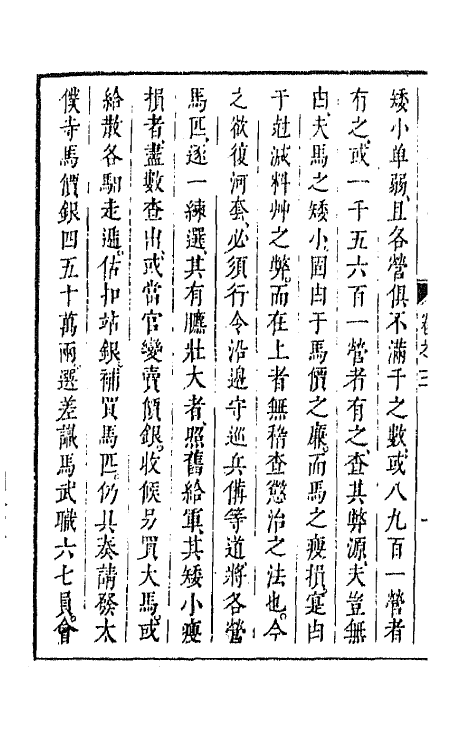 矮小单弱且各營俱不滿千之數或八九百一營者
有之或一千五六百一營者有之查其弊源夫豈無
由夫馬之矮小固由于馬價之廉而馬之瘦損寔由
于尅減料艸之弊而在上者無稽查懲治之法也今
之欲復河套必須行令沿邊守巡兵備等道將各營
馬匹逐一練選其有膘壯大者照舊給軍其矮小瘦
損者盡數查出或當官變賣價銀收候另買大馬或
給散各馹走遞估扣站銀補買馬匹仍具奏請發太
僕寺馬價銀四五十萬兩選差識馬武職六七員會
卷之三